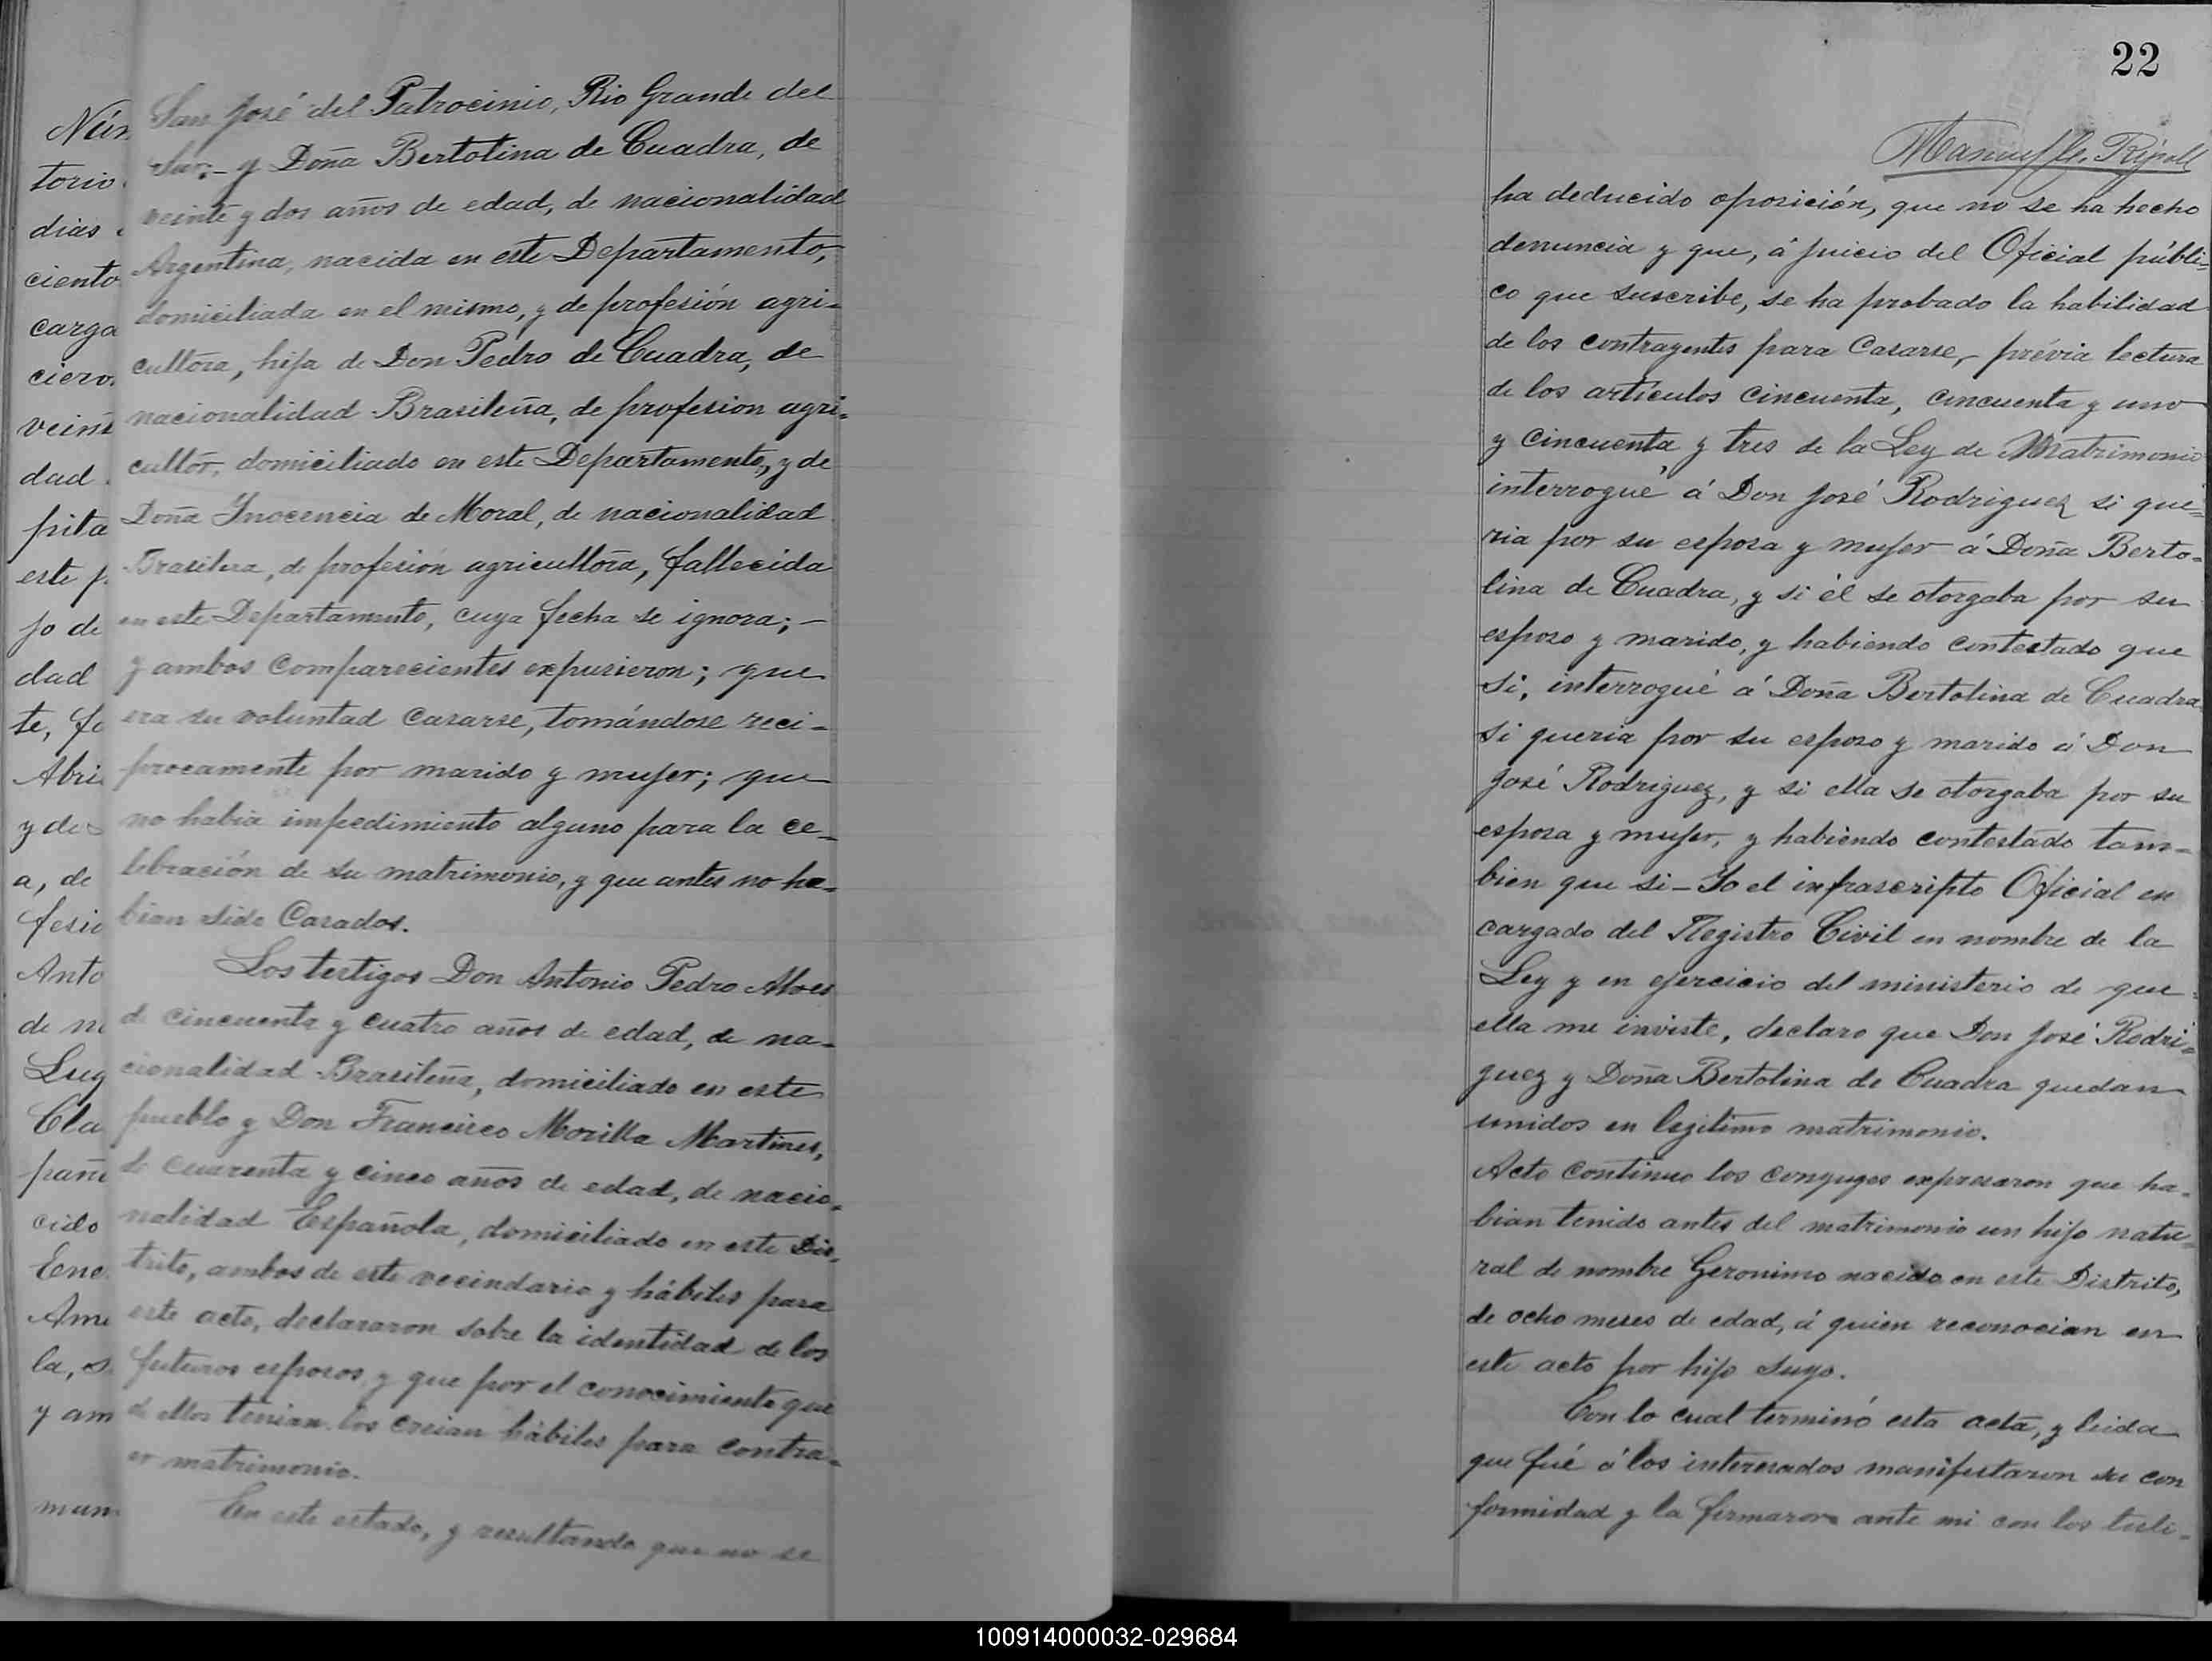 Núm
torio
dias
ciento
carga
ciero
veint
dad
pita
este p
jo de
dad
te, fa
Abri
y de
a, de
fesio
Anto
de na
Lug
Cla
pañ
cido
Ene
Ama
la, s
y am
mun
San José del Patrocinio, Rio Grande del
Sur;- y Doña Bertolina de Cuadra, de
veinte y dos años de edad, de nacionalidad
Argentina, nacida en este Departamento,
domiciliada en el mismo, y de profesión agri=
cultora, hija de Don Pedro de Cuadra, de
nacionalidad Brasileña, de profesion agri=
cultor, domiciliado en este Departamento, y de
Doña Inocencia de Moral, de nacionalidad
Brasilera, de profesión agricultora, fallecida
en este Departamento, cuya fecha se ignora;-
y ambos comparecientes expusieron; que
era su voluntad casarse, tomándose reci-
procamente por marido y mujer; que
no habia impedimiento alguno para la ce-
lebración de su matrimonio, y que antes no ha-
bian sido Casados.
Los testigos Don Antonio Pedro Alves
de cincuenta y cuatro años de edad, de na-
cionalidad Brasileña, domiciliado en este
pueblo y Don Francisco Morilla Martines,
de cuarenta y cinco años de edad, de nacio=
nalidad Española, domiciliado en este Dis-
trito, ambos de este vecindario y hábiles para
este acto, declararon sobre la identidad de los
futuros esposos y que por el conocimiento que
de ellos tenian los creian hábiles para contra-
er matrimonio.
En este estado, y resultando que no se
22
Manuel Ripoll
ha deducido oposición, que no se ha hecho
denuncia y que, á juicio del Oficial públi-
co que suscribe, se ha probado la habilidad
de los contrayentes para Casarse,- prévia lectura
de los artículos cincuenta, cincuenta y uno
y cincuenta y tres de la Ley de Matrimonio
interrogué á Don José Rodriguez si que=
ria por su esposa y mujer á Doña Berto=
lina de Cuadra, y si él se otorgaba por su
esposo y marido, y habiendo contestado que
si, interrogué á Doña Bertolina de Cuadra
si queria por su esposo y marido á Don
José Rodriguez, y si ella se otorgaba por su
esposa y mujer, y habiendo contestado tam-
bien que si- Yo el infrascripto Oficial en
cargado del Registro Civil en nombre de la
Ley y en ejercicio del ministerio de que
ella me inviste, declaro que Don José Rodri=
guez y Doña Bertolina de Cuadra quedan
unidos en legítimo matrimonio.
Acto continuo los conyuges expresaron que ha-
bian tenido antes del matrimonio un hijo natu=
ral de nombre Geronimo nacido en este Distrito,
de ocho meses de edad, á quien reconocian en
este acto por hijo suyo.
Con lo cual terminó esta acta, y leida
que fué á los interesados manifestaron su con
formidad y la firmaron ante mi con los testi-
100914000032-029684